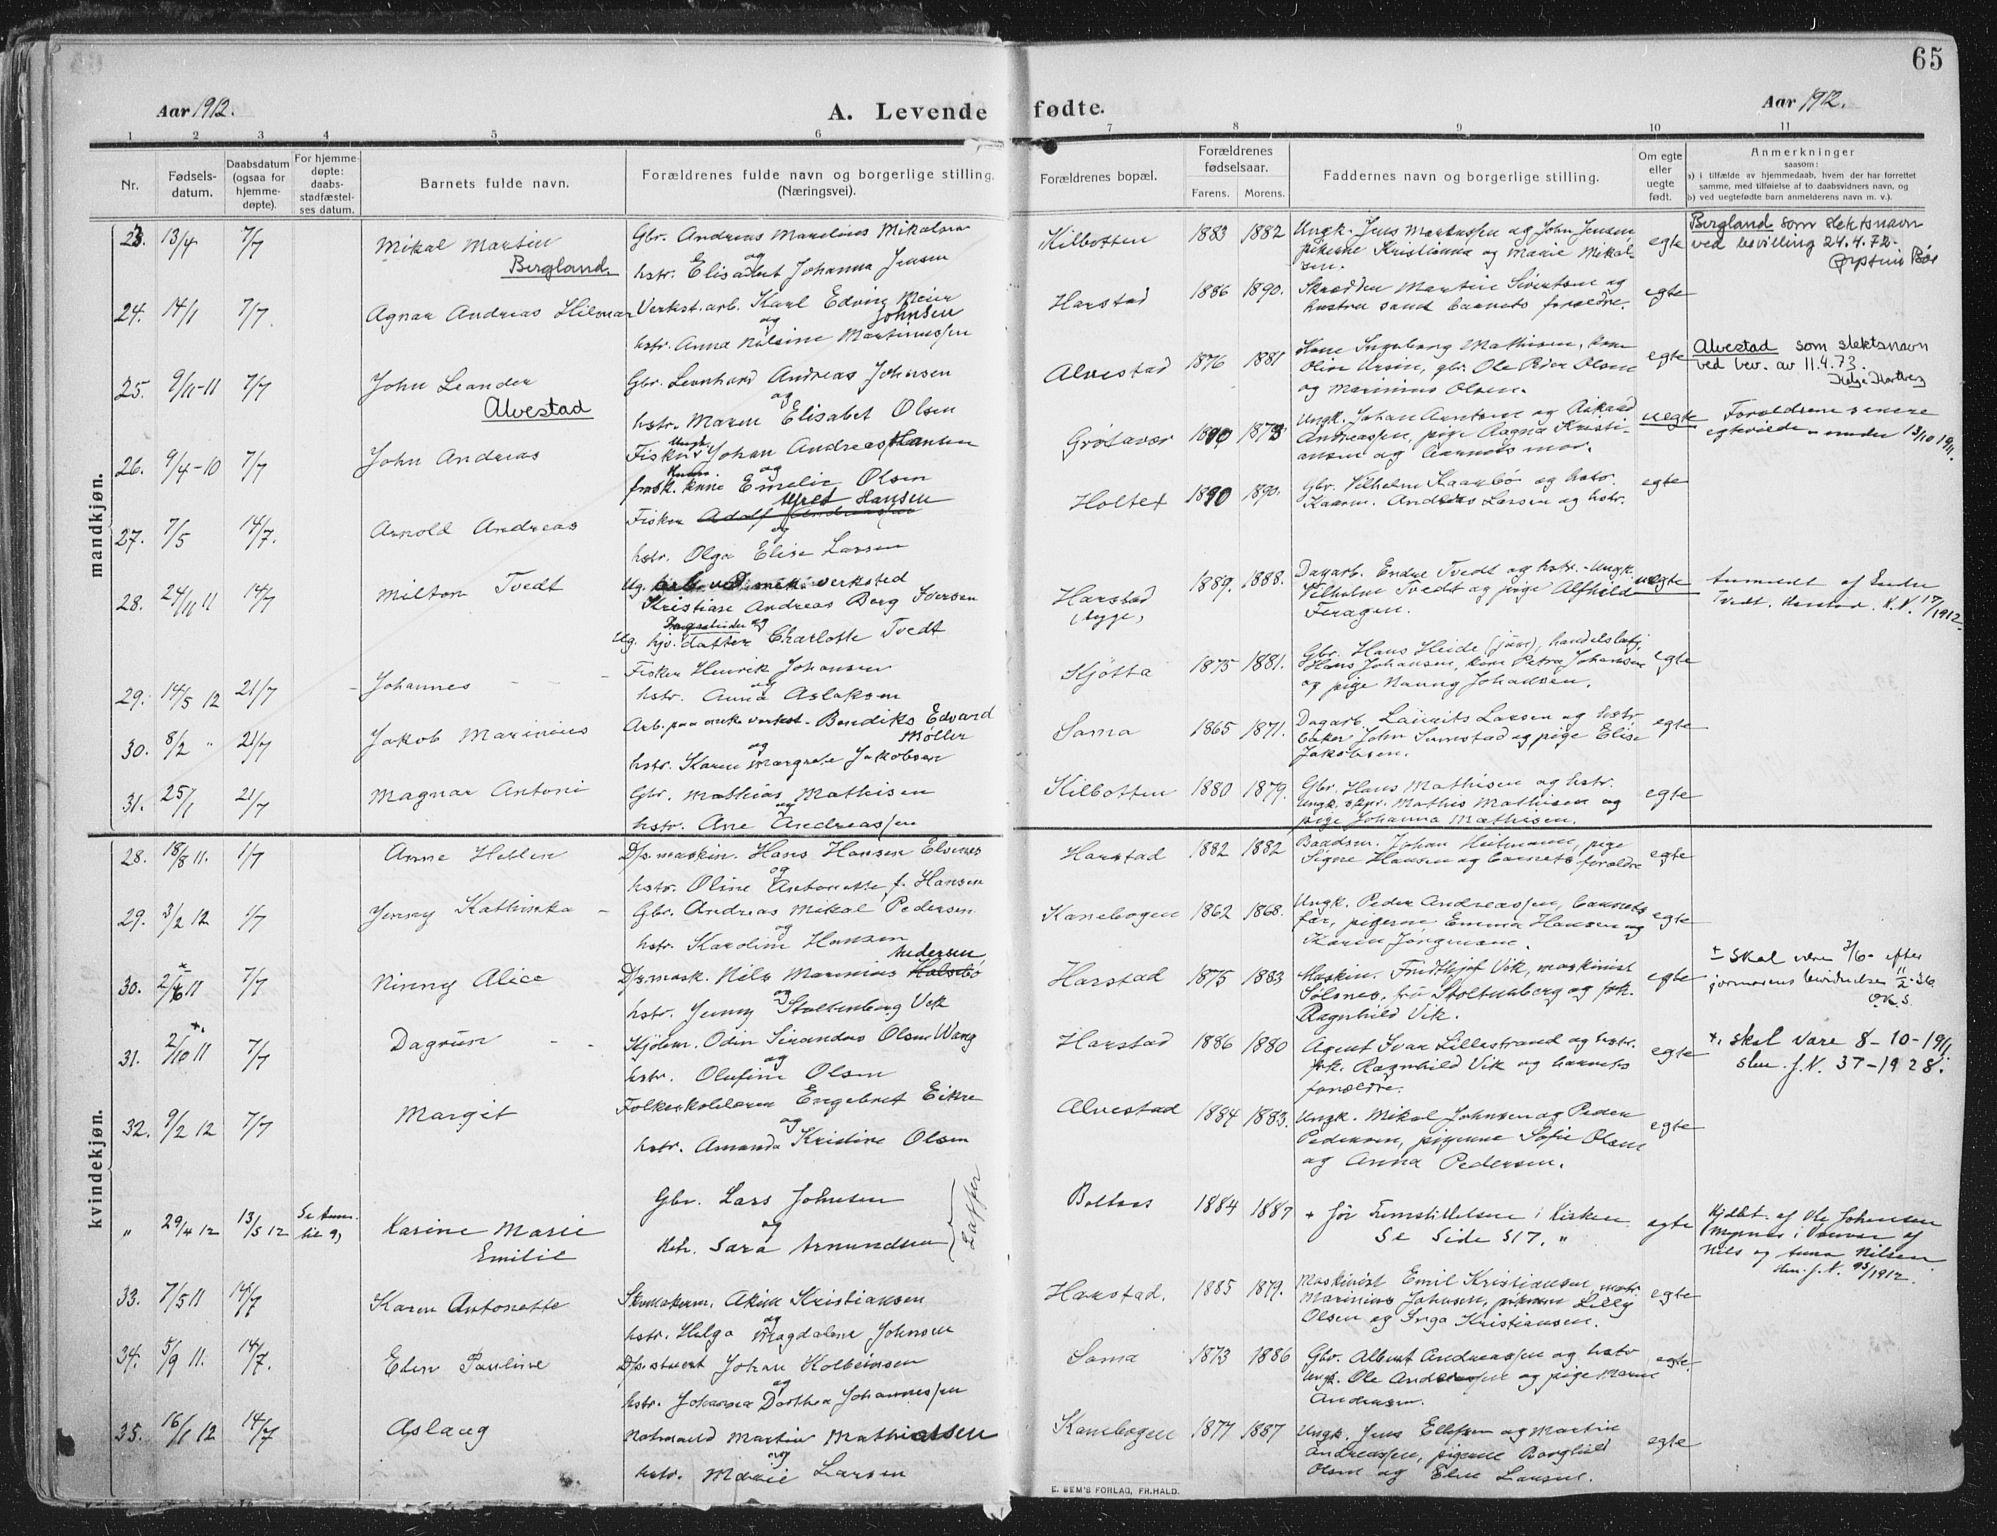 65
Aar 1912.
A. Levende fødte.
Aar 1912.
1 2 3 4 5 6 7 8 9 10 11
Nr.
Fødsels-
datum.
Daabsdatum
(ogsaa for
hjemme-
døpte).
For hjemme-
døpte:
daabs-
stadfæstel-
ses datum.
Barnets fulde navn.
Forældrenes fulde navn og borgerlige stilling.
(Næringsvei).
Forældrenes bopæl.
Forældrenes
fødselsaar.
Farens. Morens.
Faddernes navn og borgerlige stilling.
Om egte
eller
uegte
født.
Anmerkninger
saasom:
a) i tilfælde av hjemmedaab, hvem der har forrettet
samme, med tilføielse af to daabsvidners navn, og
b) ved uegtefødte barn anmelderens navn m. v.).
mandkjøn.
23. 13/4 7/7 Mikal Martin
Bergland
Gbr. Andreas Marelius Mikalsen
og
hstr. Elisabet Johanna Jensen
Kilbotten 1883 1882
Ungk. Jens Martussen og John Jensen
pikerne Kristianna og Marie Mikal-
sen.
egte
Bergland som slektsnavn
ved bevilling 24.4.72.
24. 14/1 7/7. Agnar Andreas Hilmar
Verkst. arb. Karl Edvin Meier
Johnsen
og
hstr. Anna Nilsine Martinussen
Harstad 1886 1890.
Skrædder Martin Sivertsen og
hustru samt barnets forældre.
egte
25. 9/11-11 7/7 John Leander
Alvestad
Gbr. Leonhard Andreas Johnsen
og
hstr. Maren Elisabet Olsen
Alvestad 1876 1881
Kone Ingeborg Mathisen, kone
Oline Arsin, gbr. Ole Peder Olsen
og Marinius Olsen.
egte
Alvestad som slektsnavn
ved bev. av 11.4.73.
26. 9/4-10 7/7 John Andreas
Fisker Ungk. Johan Andreas Hansen
og
Emelie Olsen
Grøtavær 1890 1873
Ungk. Johan Arntsen og Rikard
Andreassen, pige Ragna Kristi-
ansen og barnets mor.
uegte
Forældrene senere
egteviede under 13/10 1911.
27. 7/5 14/7. Arnold Andreas
Fisker Adolf Andreassen Alfred Hansen
og
hstr. Olga Elise Larsen
Holtet 1890 1890.
Gbr. Vilhelm Kaarbø og hstr.
Kaarin. Anders Larsen og hstr.
egte
28. 24/11 11 14/7 Milton Tvedt
Ug. arb. ved mek. verksted
Kristian Andreas Berg Iversen
Dagarbeider og
Ug. hjv. datter Charlotte Tvedt
Harstad
bygge, 1889. 1888.
Dagarb. Endre Tvedt og hstr. Ungk.
Vilhelm Tvedt og pige Alfhild
Feragen.
uegte
Anmeldt af Endre
Tvedt. Harstad. K.N. 17/1912.
29. 14/5 12 21/7 Johannes
Fisker Henrik Johansen
og
hstr. Anna Aslaksen
Kjøtta 1875 1881.
Gbr. Hans Heide (jøv), handelsbetj.
Hans Johansen, kone Petra Johansen
og pige Nanny Johansen.
egte
30. 8/2 " 21/7 Jakob Marinius
Arb. paa mek. verkst. Bendiks Edvard
Møller
og
hstr. Karen Margrete Jakobsen
Sama 1865 1871.
Dagarb. Laurits Larsen og hstr
baker John Simestad og pige Elise
Jakobsen.
egte
31. 25/1 21/7 Magnar Antoni
Gbr. Mathias Mathisen
og
hstr. Ane Andreassen
Kilbotten 1880 1879.
Gbr. Hans Mathisen og hstr.
Ungk. skpr. Mathis Mathisen og
pige Johanna Mathisen.
egte
kvindekjøn.
28. 18/8 11. 1/7 Anne Hellen
D/s maskin. Hans Hansen Elvenes
og
hstr. Oline Antonette f. Hansen
Harstad 1882 1882
Baadsm. Johan Heitmann, pige
Signe Hansen og barnets forældre
egte
29. 3/2 12 1/7 Jenny Kathinka
Gbr. Andreas Mikal Pedersen
og
hstr. Karoline Hansen
Kanebogen 1862 1868.
Ungk. Peder Andreassen, barnets
far, pigerne Emma Hansen og
Karin Jørgensen.
egte
30. 2/6 11 7/7 Ninny Alice
D/s mask. Nils Marinius Holsbø Pedersen
og
hstr. Jenny Stoltenberg Vik
Harstad 1875 1883
Maskin. Fridthjof Vik, maskinist
Sølsnes, fru Stoltenberg og frk.
Ragnhild Vik.
egte
+ skal være 7/6 efter
jormorens bevidnelse 11/2-36
O.K.S.
31. 2/10 11 7/7 Dagrun
Kjøbm. Odin Serander Olsen Wang
og
hstr. Olufine Olsen
Harstad 1886 1880
Agent Ivar Lillestrand og hstr.
frk. Ragnhild Vik og barnets
forældre.
egte
+. skal være 8-10-1911.
skr. J.N. 37-1928.
32. 9/2 12 7/7 Margit
Folkeskolelærer Engebret Eikre
og
hstr. Amanda Kristine Olsen
Alvestad 1884 1883.
Ungk. Mikal Johnsen og Peder
Pedersen, pigerne Sofie Olsen
og Anna Pedersen.
egte
" 29/4 12 13/5 12 Se Anm.
til 9) Karine Marie
Emilie
Gbr. Lars Johnsen
og
Hstr. Sara Amundsen
Boltaas 1884 1887
+ før Fremstillelsen i Kirken.
Se Side 317. "
egte
Hjdbt. af Ole Johansen
i Nærvær af
Nils og Anna Nilsen
skr. J.N. 93/1912.
33. 7/5 11 14/7 Karen Antonette
Skomakerm. Akim Kristiansen
og
hstr. Helga Magdalene Johnsen
Harstad. 1885 1879.
Maskinist Emil Kristiansen,
Marinius Johnsen, pikerne Lilly
Olsen og Inga Kristiansen.
egte
34. 5/9 11. 14/7. Elen Pauline
D/s stuert Johan Kolbeinsen
og
hstr. Johanna Dorthea Johannessen
Sama 1873 1886
Gbr. Albert Andreassen og hstr
Ungk. Ole Andreassen og pige Marie
Andersen.
egte.
35. 16/1 12 14/7 Aslaug
Notmand Martin Mathiassen
og
hstr. Marie Larsen
Kanebogen 1877 1887
Ungk. Jens Ellefsen og Martin
Andreassen, pigerne Borghild
Olsen og Elen Larsen.
egte
E. SEM'S FORLAG, FR.HALD.